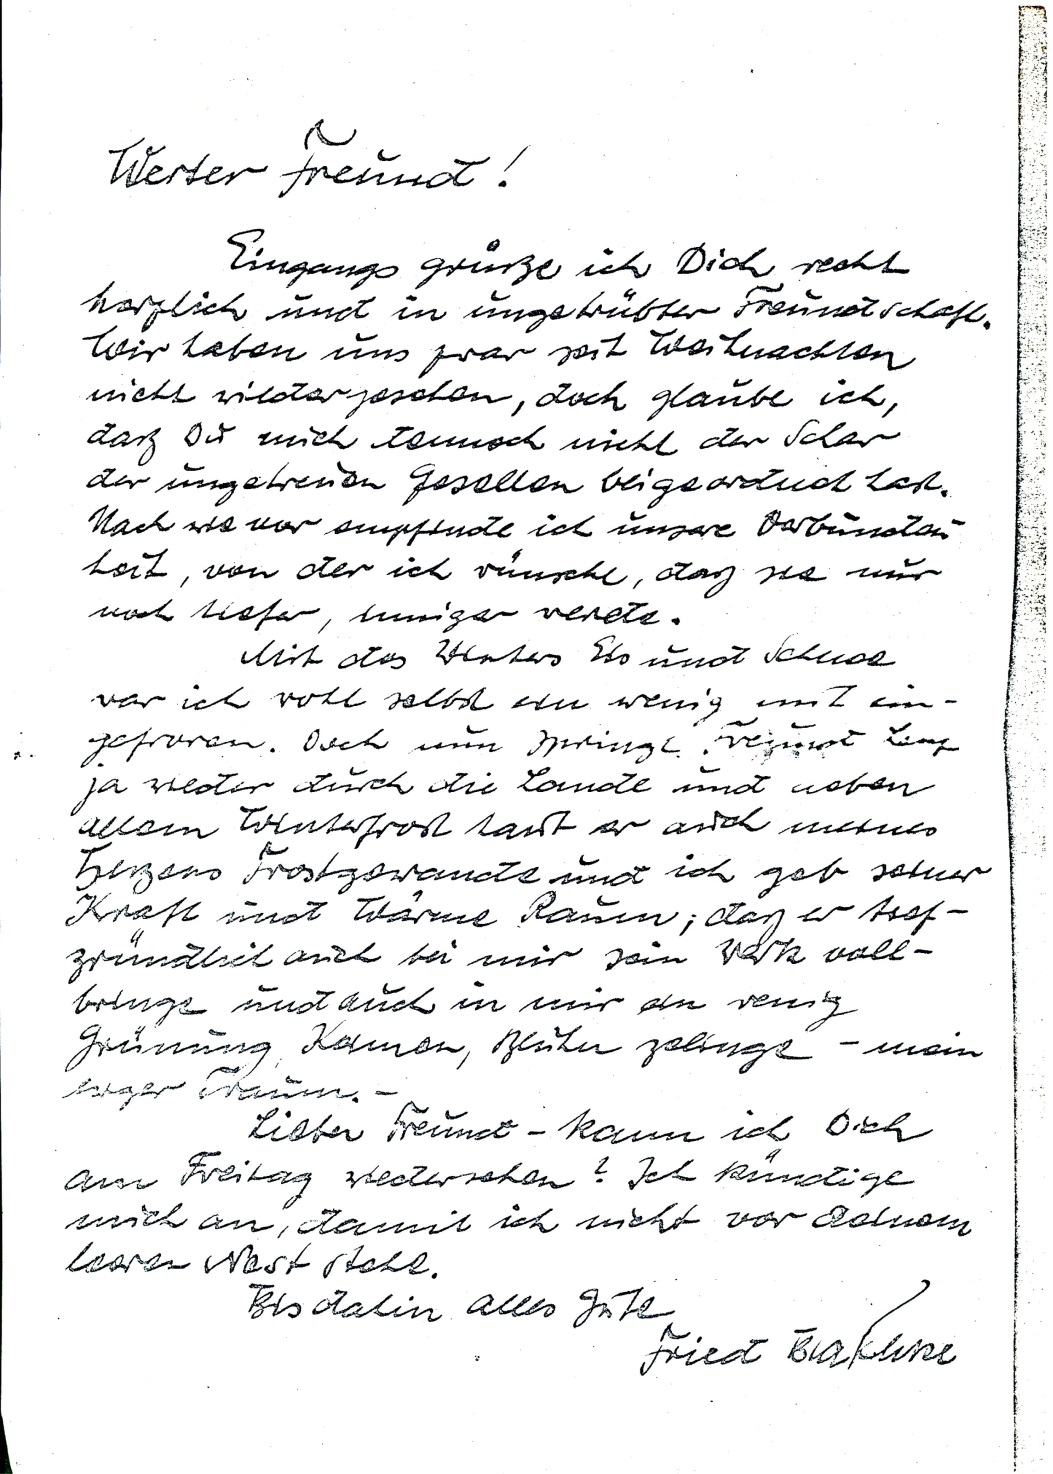 Werter Freund!
Eingangs grüße ich Dich recht
herzlich und in ungetrübter Freundschaft.
Wir haben uns zwar seit Weihnachten
nicht wiedergesehen, doch glaube ich,
daß Du mich dennoch nicht der Schar
der ungetreuen Gesellen beigeordnet hast.
Nach wie vor empfinde ich unsere Verbunden
heit, von der ich wünsche, daß sie nur
noch tiefer, inniger werde.
Mit des Winters Eis und Schnee
war ich wohl selbst ein wenig mit ein-
gefroren. Doch nun springt Freund Lenz
ja wieder durch die Lande und neben
allem Winterfrost taut er auch meines
Herzens Frostgewande und ich geb seiner
Kraft und Wärme Raum; daß er tief-
gründlich auch bei mir sein Werk voll-
bringe und auch in mir ein wenig
Grünung, Keimen, Blühn gelinge - mein
ewger Traum. -
Lieber Freund - kann ich Dich
am Freitag wiedersehen? Ich kündige
mich an, damit ich nicht vor Deinem
leeren Nest stehe.
Bis dahin alles Gute
Fried